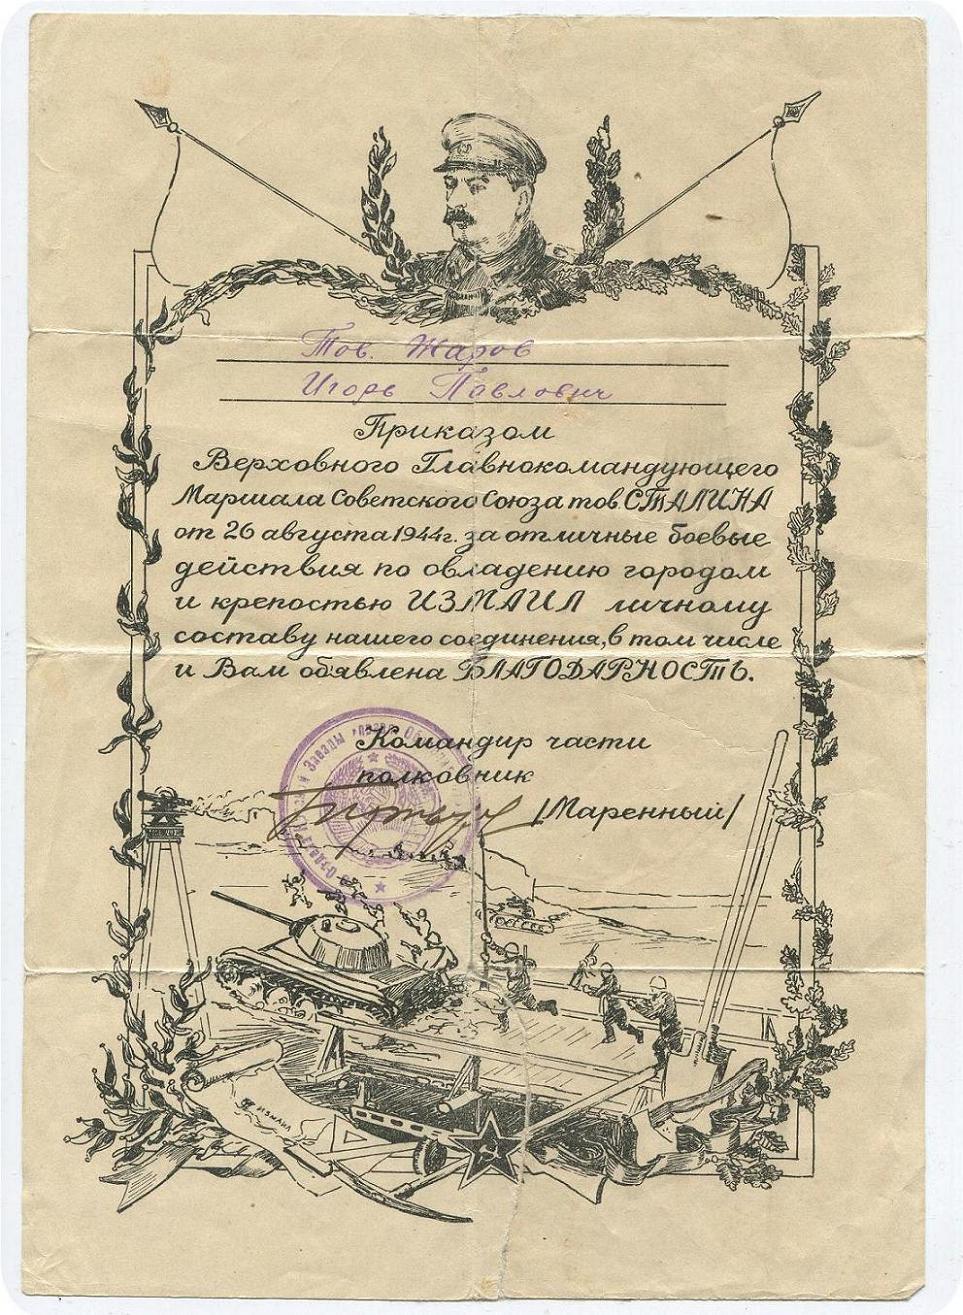 Тов. Жаров
Игорь Павлович
Приказом
Верховного Главнокомандующего
Маршала Советского Союза тов. СТАЛИНА
от 26 августа 1944г. за отличные боевые
действия по овладению городом
и крепостью ИЗМАИЛ личному
составу нашего соединения, в том числе
и Вам обявлена БЛАГОДАРНОСТЬ.
Командир части
полковник
/Маренный/
Звезды
ИЗМАИЛ